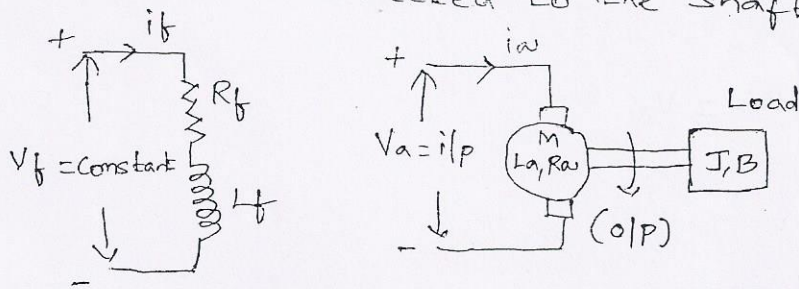 to the shaft
+ if
Rf
Vf = constant
Lf
-
+ ia
Va = i/p
M
La, Ra
Load
J, B
(o/p)
-